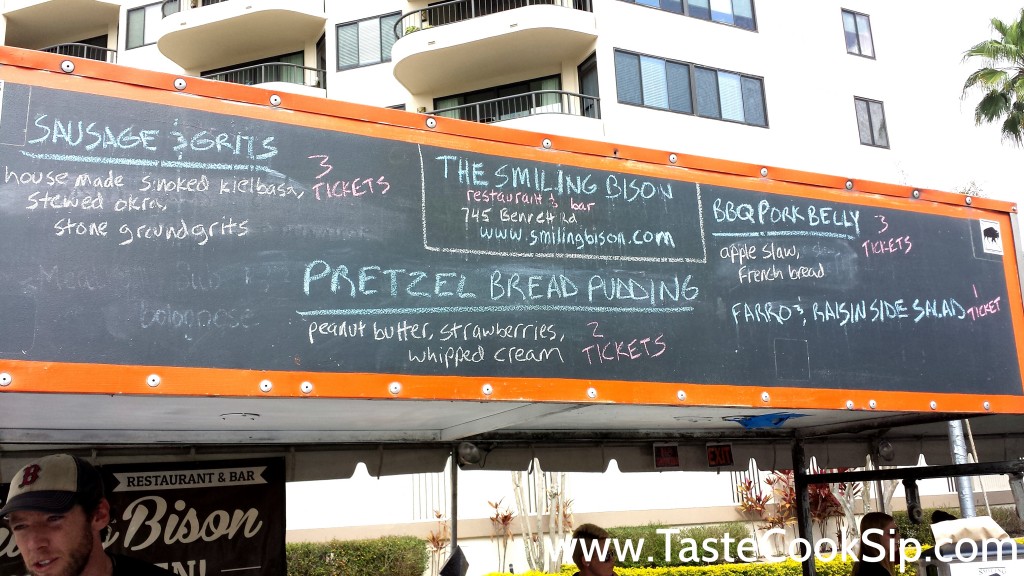 SAUSAGE & GRITS
house made smoked kielbasa,
stewed okra,
stone ground grits
3
TICKETS
THE SMILING BISON
restaurant & bar
745 Bennett Rd
www.smilingbison.com
PRETZEL BREAD PUDDING
peanut butter, strawberries,
whipped cream
2
TICKETS
BBQ PORK BELLY
apple slaw,
French bread
3
TICKETS
FARRO & RAISIN SIDE SALAD
1
TICKET
bolognese
B
RESTAURANT & BAR
Bison
EXIT
www.TasteCookSip.com